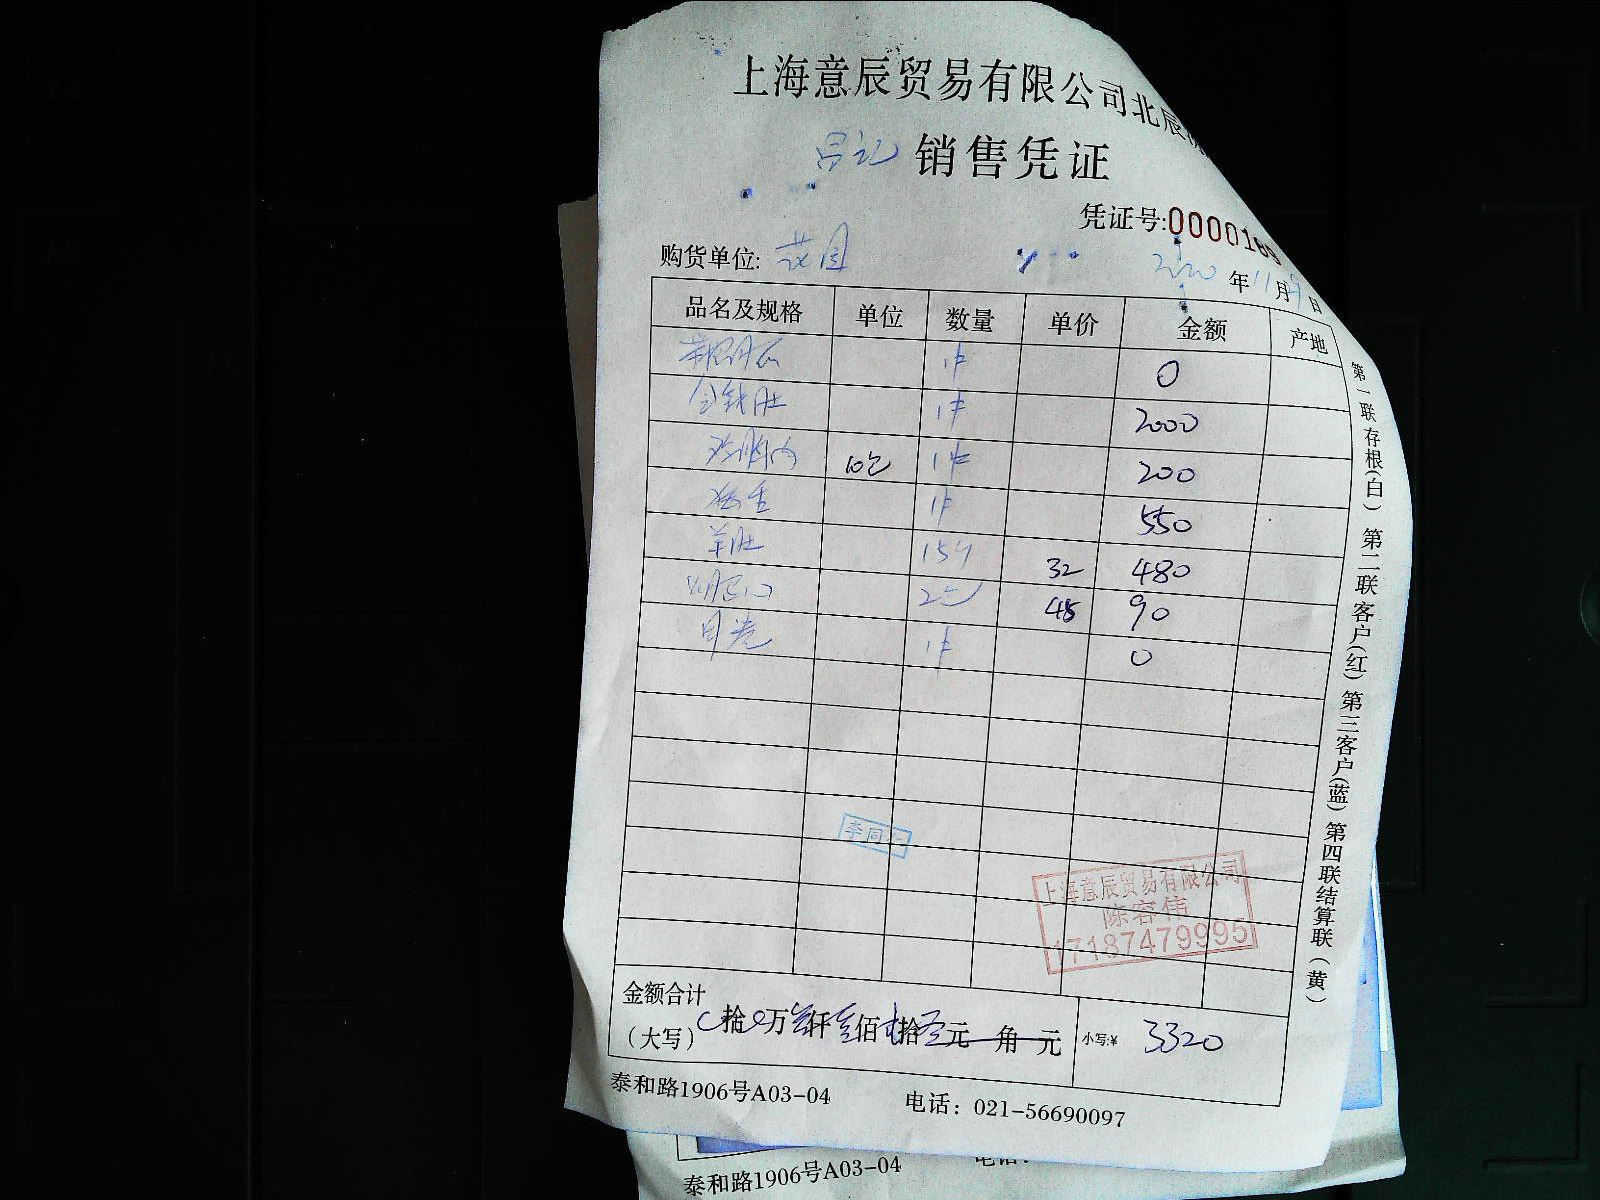 上海意辰贸易有限公司北辰
吕记 销售凭证
凭证号:0000169
购货单位: 花园
2020 年 11 月 9 日
品名及规格 单位 数量 单价 金额 产地
1件 0
金钱肚 1件 2000
10包 1件 200
1件 550
羊肚 15斤 32 480
2包 45 90
1件 0
李同
上海意辰贸易有限公司
陈容伟
17187479995
金额合计
(大写) 拾 万 叁仟叁佰 拾 元 角 元 小写:¥ 3320
泰和路1906号A03-04 电话: 021-56690097
第一联存根(白) 第二联客户(红) 第三客户(蓝) 第四联结算联(黄)
泰和路1906号A03-04 电话: